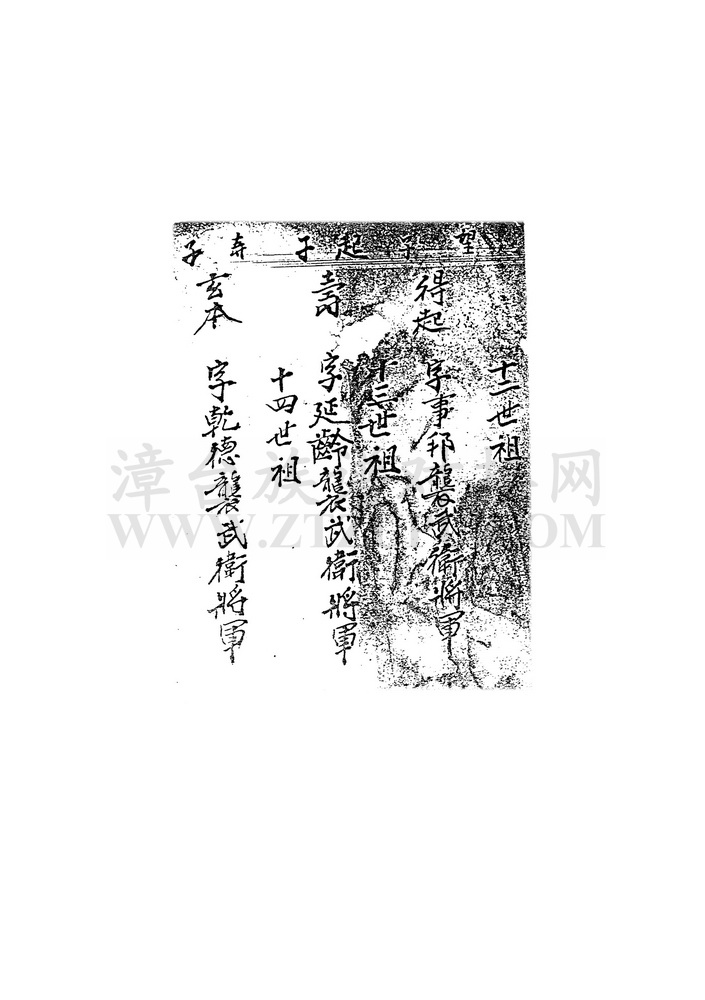 望子 起子 寿子
十二世祖
得起 字事邦襲武衛將軍
十三世祖
壽 字延齡襲武衛將軍
十四世祖
玄本 字乾德襲武衛將軍
漳台族
WWW.ZT
.COM